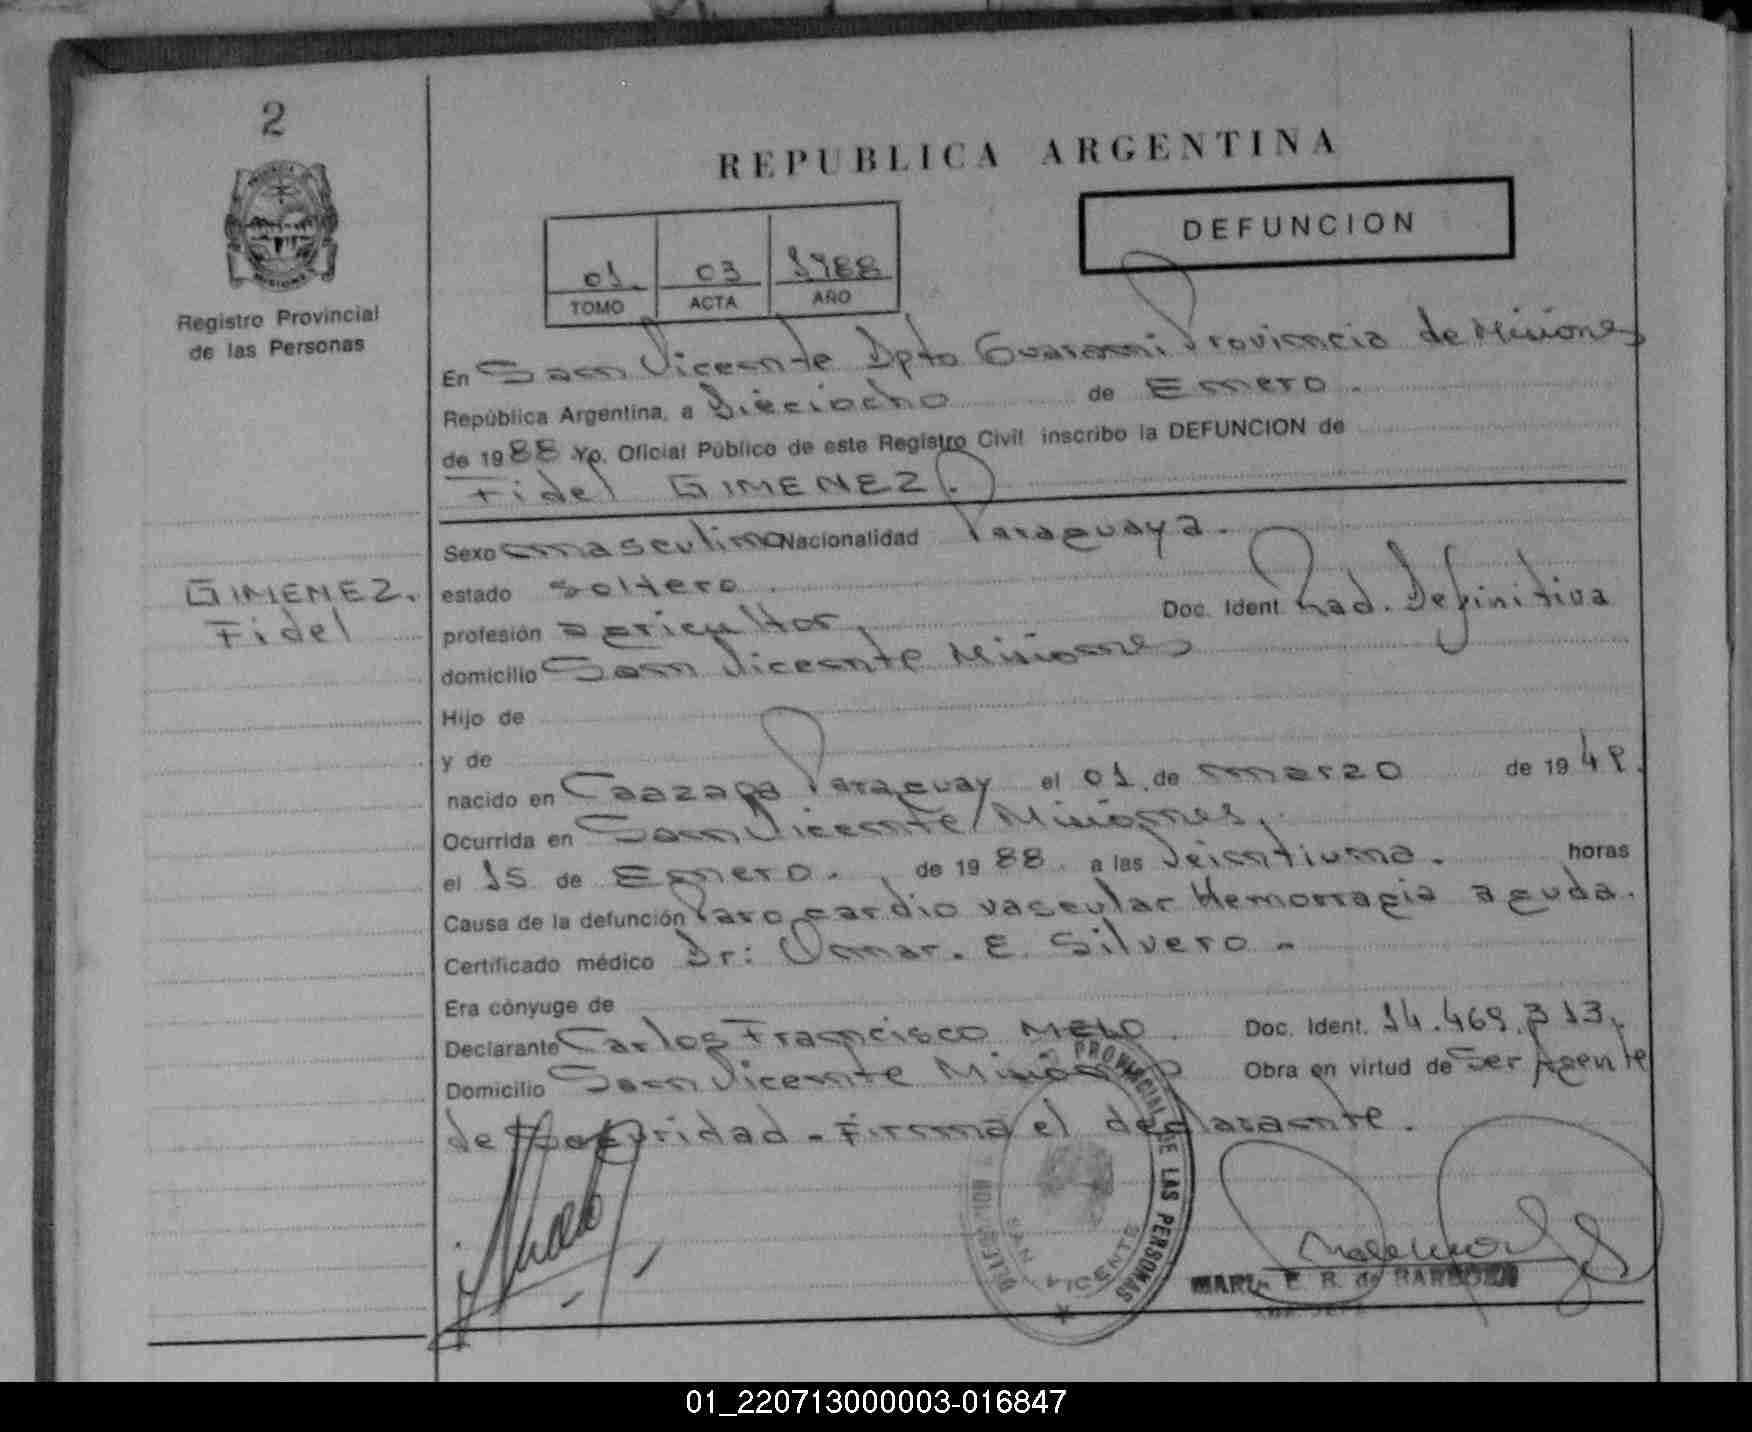 2
REPUBLICA ARGENTINA
DEFUNCION
01 03 1988
TOMO ACTA AÑO
Registro Provincial
de las Personas
En San Vicente Dpto Guarani Provincia de Misiones
República Argentina, a Dieciocho de Enero.
de 1988 Yo. Oficial Público de este Registro Civil inscribo la DEFUNCION de
Fidel GIMENEZ.
Sexo masculino Nacionalidad Paraguaya.
GIMENEZ.
Fidel
estado soltero.
profesión agricultor, Doc. Ident. Rad. Definitiva
domicilio San Vicente Misiones
Hijo de
y de
nacido en Caazapa Paraguay el 01. de marzo de 1949.
Ocurrida en San Vicente/Misiones,.
el 15 de Enero. de 1988. a las Veintiuna. horas
Causa de la defunción Paro cardio vascular Hemorragia aguda.
Certificado médico Dr: Omar. E. Silvero -
Era cónyuge de
Declarante Carlos Francisco MELO. Doc. Ident. 14.469.313.
Domicilio San Vicente Misiones Obra en virtud de Ser Agente
de seguridad - Firma el declarante.
PROVINCIAL DE LAS PERSONAS
SAN VICENTE
MARIA E. R. de BARBOZA
01_220713000003-016847